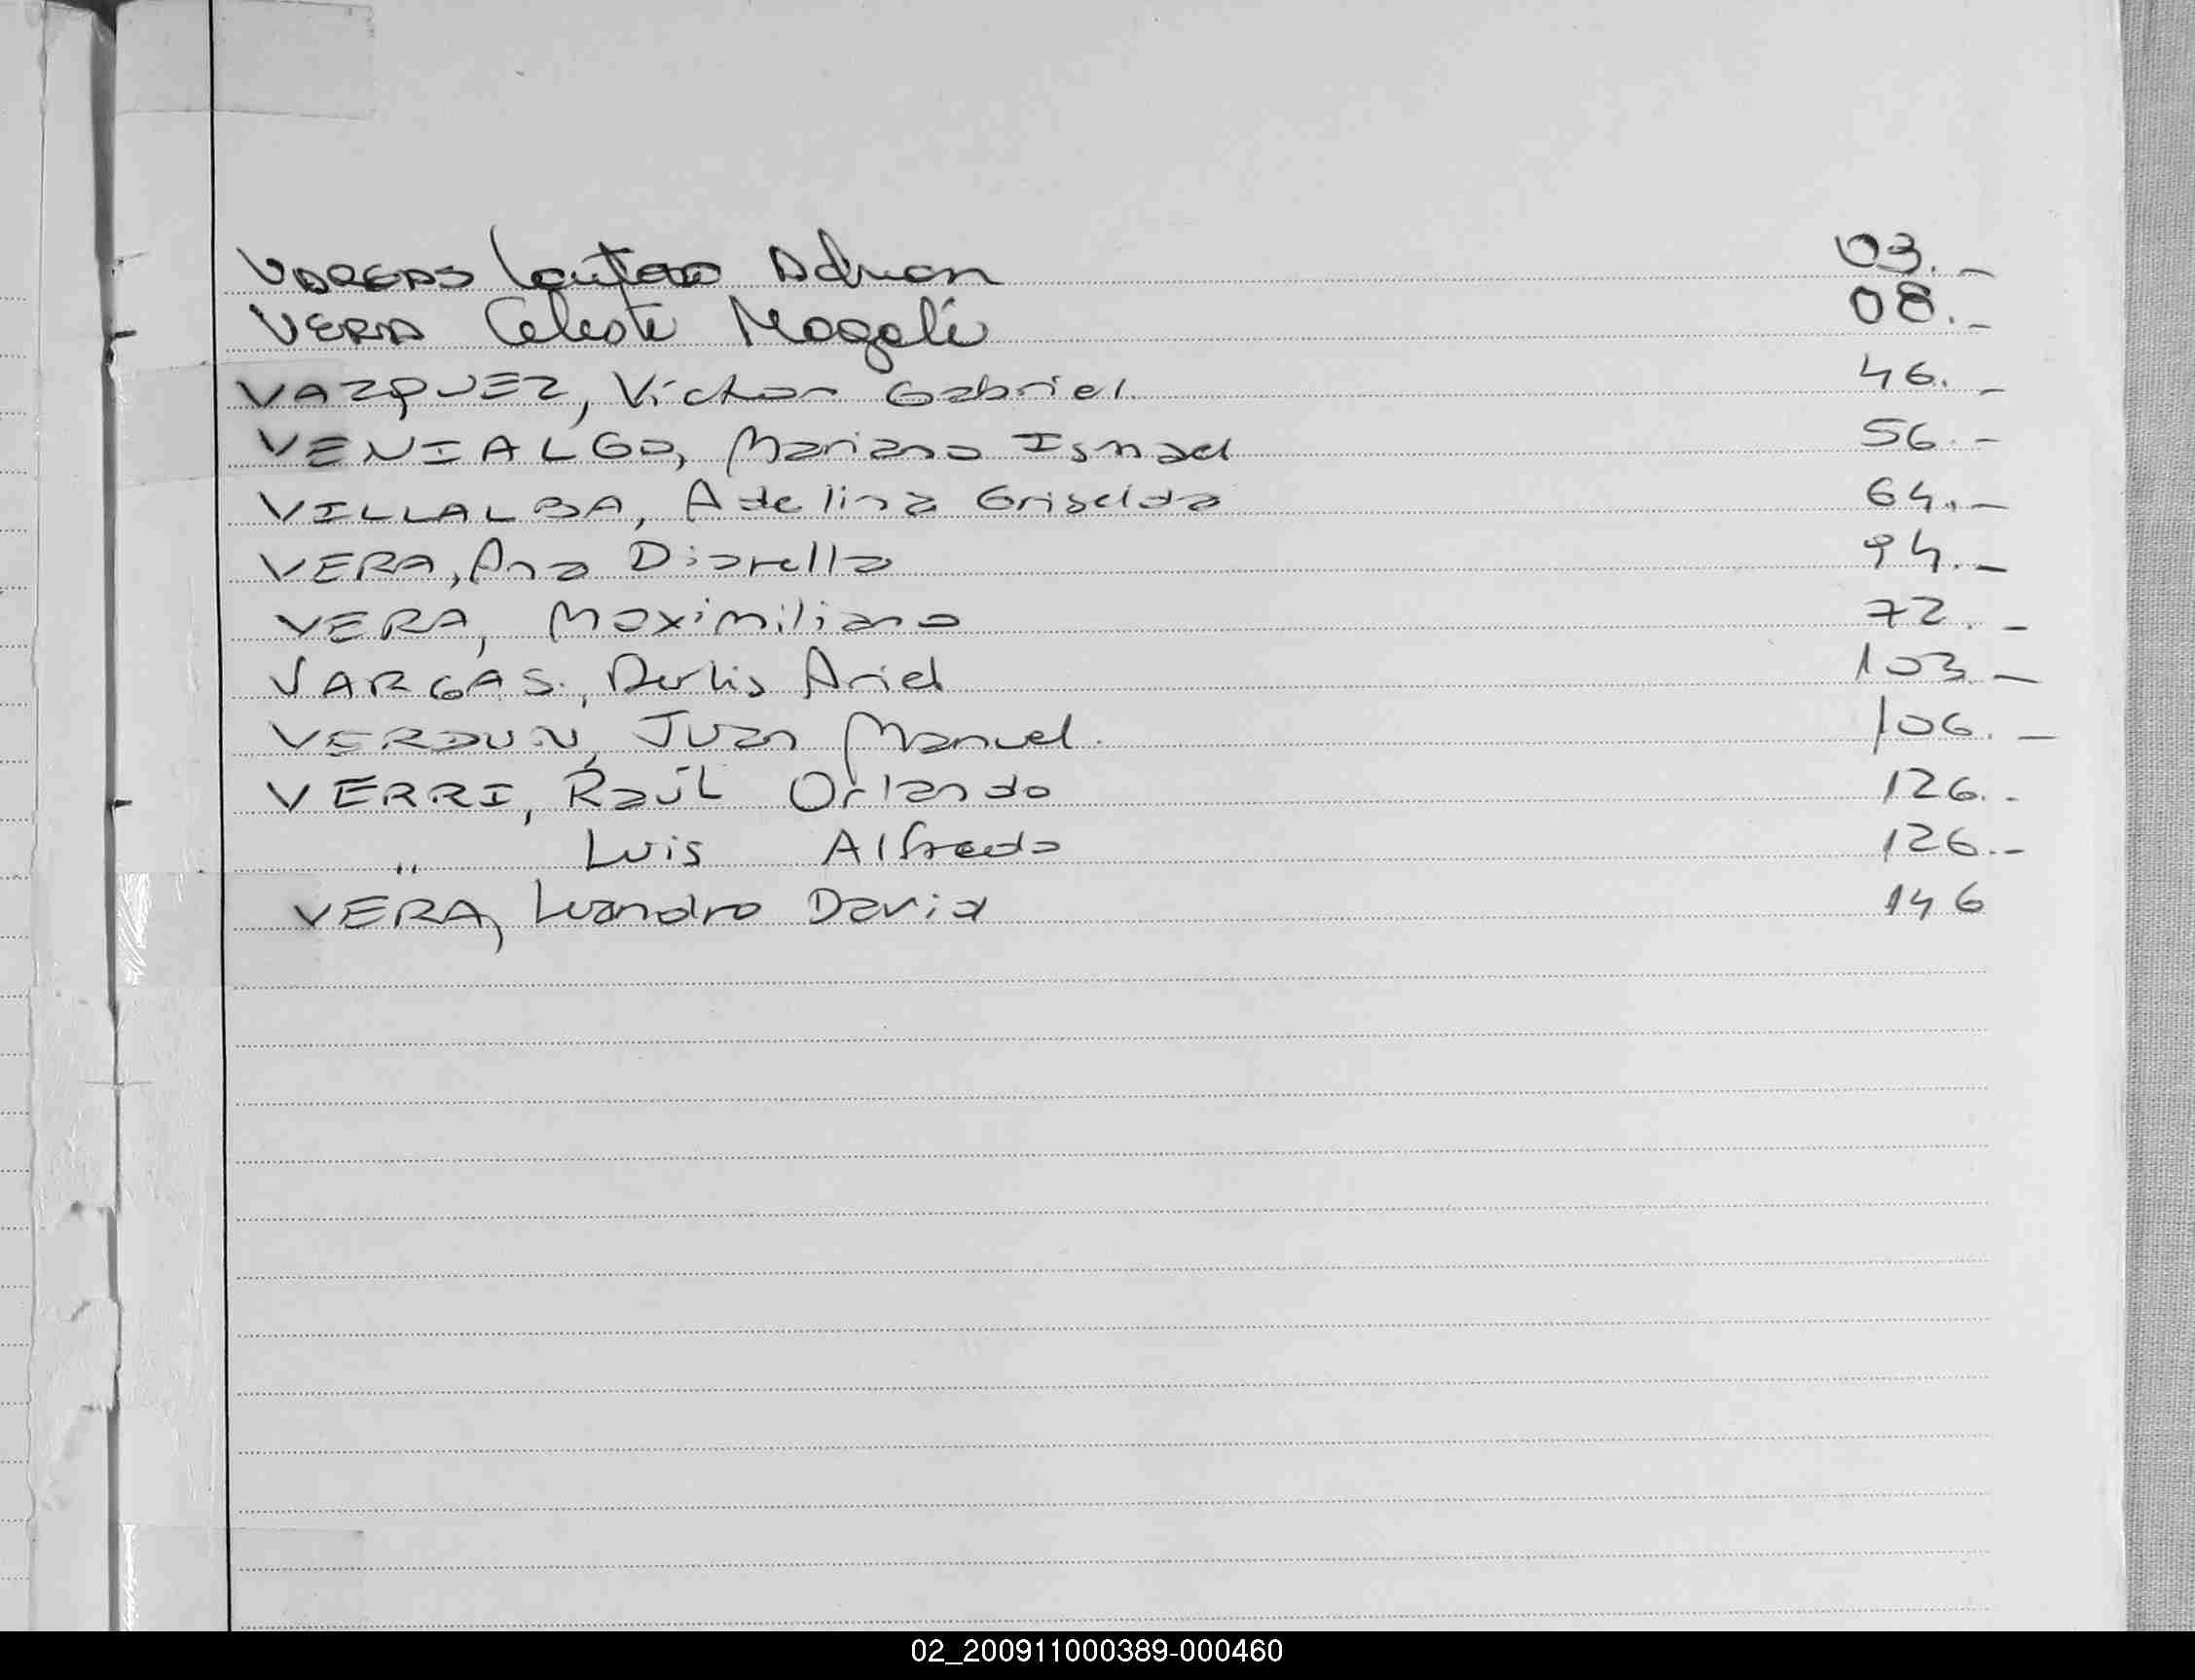 VARGAS Lautaro Adrian 03.-
VERA Celeste Magalí 08.-
VAZQUEZ, Víctor Gabriel. 46.-
VENIALGO, Mariano Ismael 56.-
VILLALBA, Adelina Griselda 64.-
VERA, Ana Diarella 94.-
VERA, Maximiliano 72.-
VARGAS, Derlis Ariel 103.-
VERDUN, Juan Manuel. 106.-
VERRI, Raúl Orlando 126.-
" Luis Alfredo 126.-
VERA, Leandro David 146
02_200911000389-000460